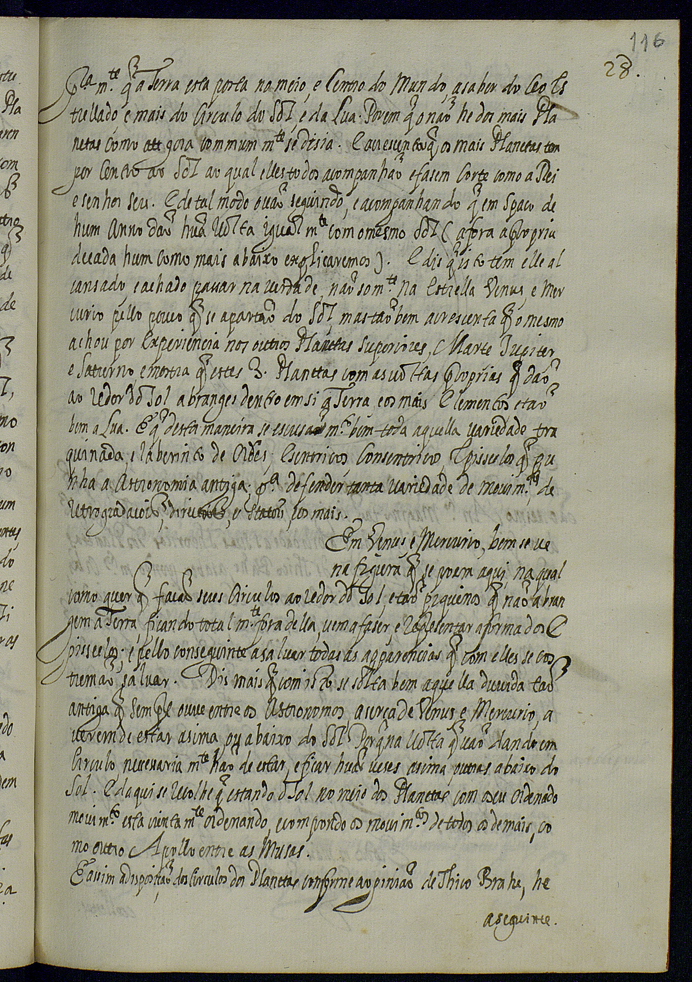 116
28.
mte q̃ a Terra esta posta no meio, e Centro do Mundo, a saber do Ceo Es
trellado e mais do Circulo do Sol e da Lua. Porem q̃ o não he dos mais Pla
netas como ategora commum mte se disia. E acresenta q̃ os mais Planetas tem
por Centro ao Sol ao qual elles todos acompanhaõ e fasem Corte como a Rei
e senhor seu. E de tal modo o vaõ seguindo, e acompanhando q̃ em espaço de
hum Anno daõ huã volta igual mte com o mesmo Sol (afora a propria
de cada hum como mais abaixo explicaremos). E dis q̃ isto tem elle al
cansado e achado passar na verdade, naõ som te na Estrella Venus e Mer
curio pello pouco q̃ se apartaõ do Sol mas taõ bem acresenta q̃ o mesmo
achou por Experiencia nos outros Planetas Superiores, Marte Jupiter
e Saturno e mostra q̃ estes 3. Planetas com as voltas proprias q̃ daõ
ao redor do Sol abranges dentro em si a Terra e os mais Elementos e taõ
bem a Lua. E q̃ desta maneira se escusa mto bem toda aquella variedade tra
quinada, e laberinto de Orbes, Esentricos, Consentricos, Episiclos q̃ ti
nha a Astronomia antiga pa defender tanta variedade de movimtos de
Retrogradaçois, direcçois, e statos e o mais.
Em Venus e Mercurio, bem se ve
na figura q̃ se poem aqui na qual
como quer q̃ façaõ seus Circulos ao redor do Sol, e taõ piquenos q̃ naõ abran
gem a Terra ficando total mte fora della, vem a faser e representar a forma dos E
pisiclos: e pello conseguinte a salvar todas as apparencias q̃ com elles se cos
tumaõ salvar. Dis mais q̃ com isto se solta bem aquella duvida taõ
antiga q̃ sempre ouve entre os Astronomos, aserca de Venus e Mercurio, a
verem de estar asima, ou abaixo do Sol. Porq̃ na volta q̃ vaõ dando em
Circulo necesaria mte haõ de estar, e ficar huãs veses asima outras abaixo do
Sol. E daqui se recolhe q̃ estando o Sol no meio dos Planetas com o seu ordenado
movimto esta junta mte ordenando, e compondo os movimtos de todos os demais, co
mo outro Apollo entre as Musas.
E assim a disposiçaõ dos Circulos dos Planetas conforme a opiniaõ de Thico Brahe, he
a seguinte.